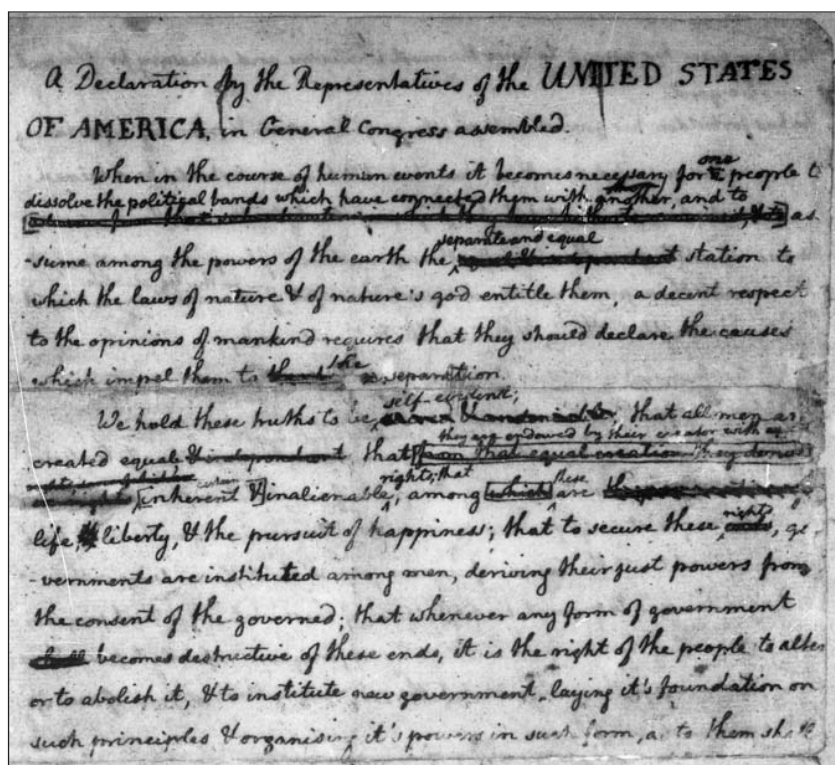 A Declaration by the Representatives of the UNITED STATES
OF AMERICA, in General Congress assembled.
When in the course of human events it becomes necessary for one people to
dissolve the political bands which have connected them with another, and to
as
separate and equal
-sume among the powers of the earth the station to
which the laws of nature & of nature's god entitle them, a decent respect
to the opinions of mankind requires that they should declare the causes
the
which impel them to separation.
self-evident;
We hold these truths to be that all men are
they are endowed by their creator with
created equal & independant that from that equal creation they derive
certain rights; that these
inherent & inalienable, among which are
rights
life, & liberty, & the pursuit of happiness; that to secure these ends, go
-vernments are instituted among men, deriving their just powers from
the consent of the governed; that whenever any form of government
shall becomes destructive of these ends, it is the right of the people to alter
or to abolish it, & to institute new government, laying it's foundation on
such principles & organising it's powers in such form, as to them sh